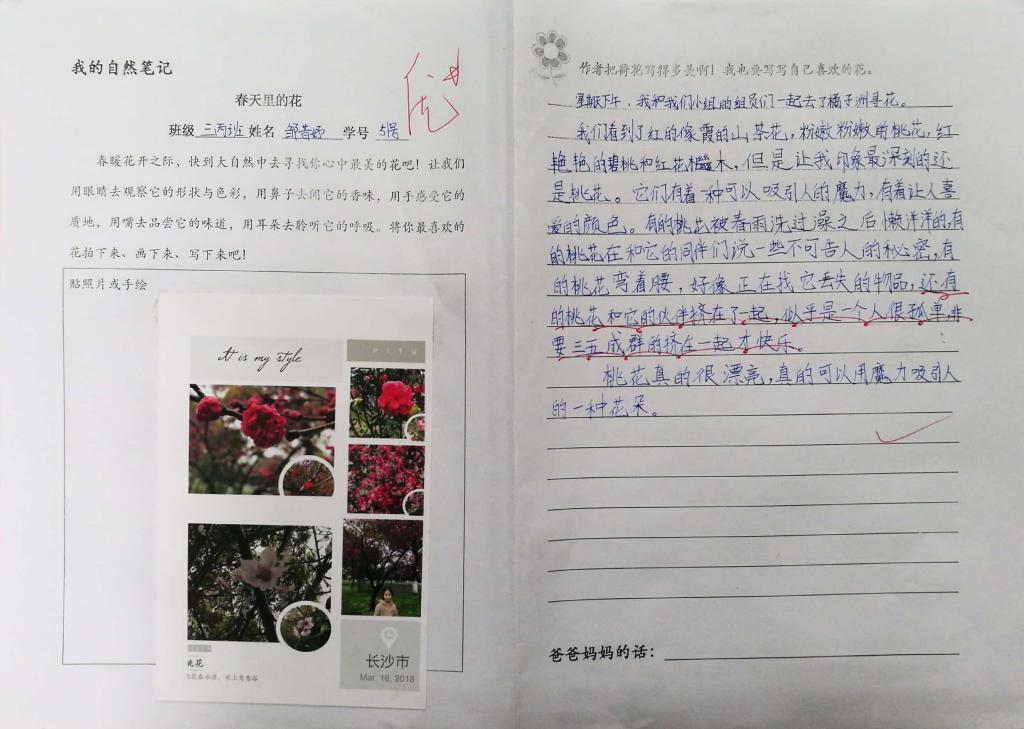 我的自然笔记
春天里的花
班级 三丙班 姓名 邹 学号 5号
优+
春暖花开之际，快到大自然中去寻找你心中最美的花吧！让我们
用眼睛去观察它的形状与色彩，用鼻子去闻它的香味，用手感受它的
质地，用嘴去品尝它的味道，用耳朵去聆听它的呼吸。将你最喜欢的
花拍下来、画下来、写下来吧！
贴照片或手绘
It is my style
PITU
桃花
长沙市
Mar. 18, 2018
作者把荷花写得多美啊！我也要写写自己喜欢的花。
星期天下午，我和我们小组的组员们一起去了橘子洲寻花。
我们看到了红的像霞的山茶花，粉嫩粉嫩的桃花，红
艳艳的碧桃和红花檵木，但是让我印象最深刻的还
是桃花。它们有着一种可以吸引人的魔力，有着让人喜
爱的颜色。有的桃花被春雨洗过澡之后懒洋洋的，有
的桃花在和它的同伴们说一些不可告人的秘密，有
的桃花弯着腰，好像正在找它丢失的物品，还有
的桃花和它的伙伴挤在了一起，似乎是一个人很孤单，非
要三五成群的挤在一起才快乐。
桃花真的很漂亮，真的可以用魔力吸引人
的一种花朵。
爸爸妈妈的话：